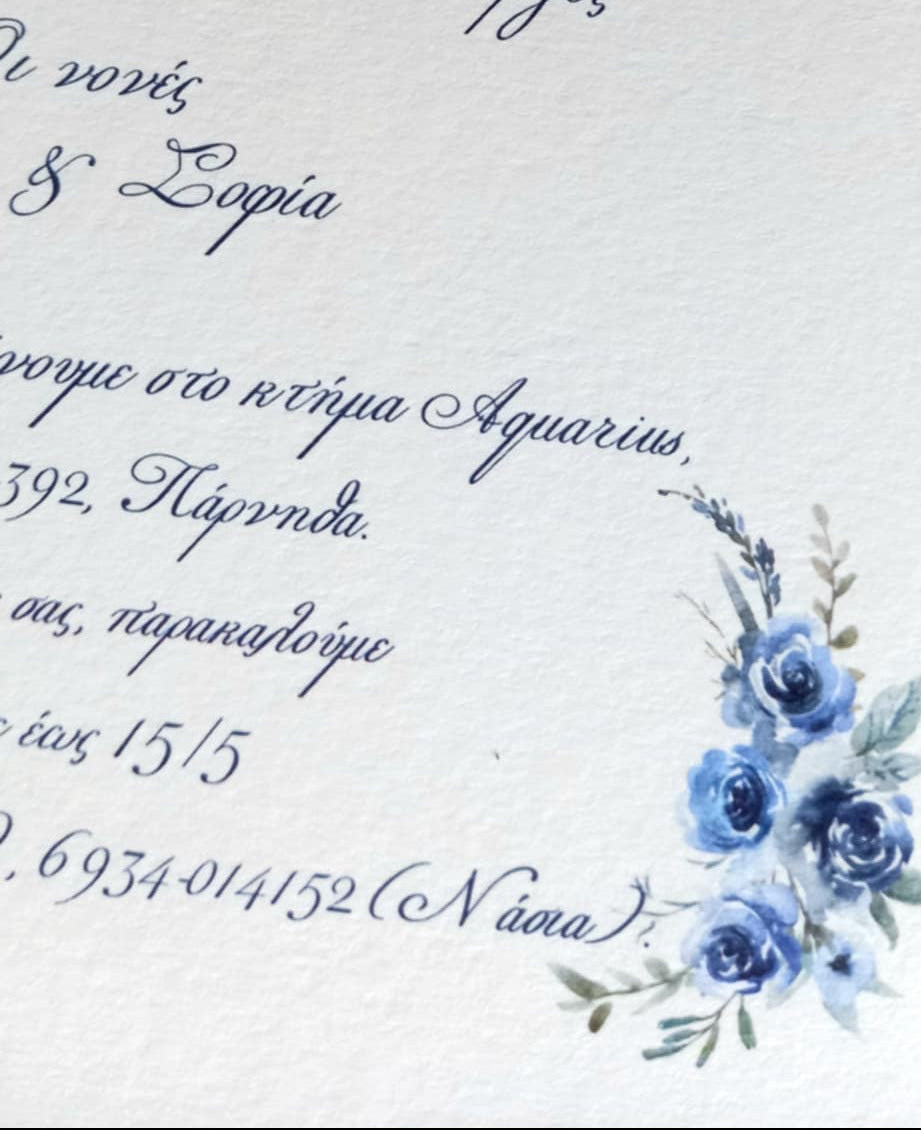 νονές
& Σοφία
στο κτήμα Aquarius,
392, Πάρνηθα.
σας, παρακαλούμε
έως 15/5
6934-014152 (Νάσια)